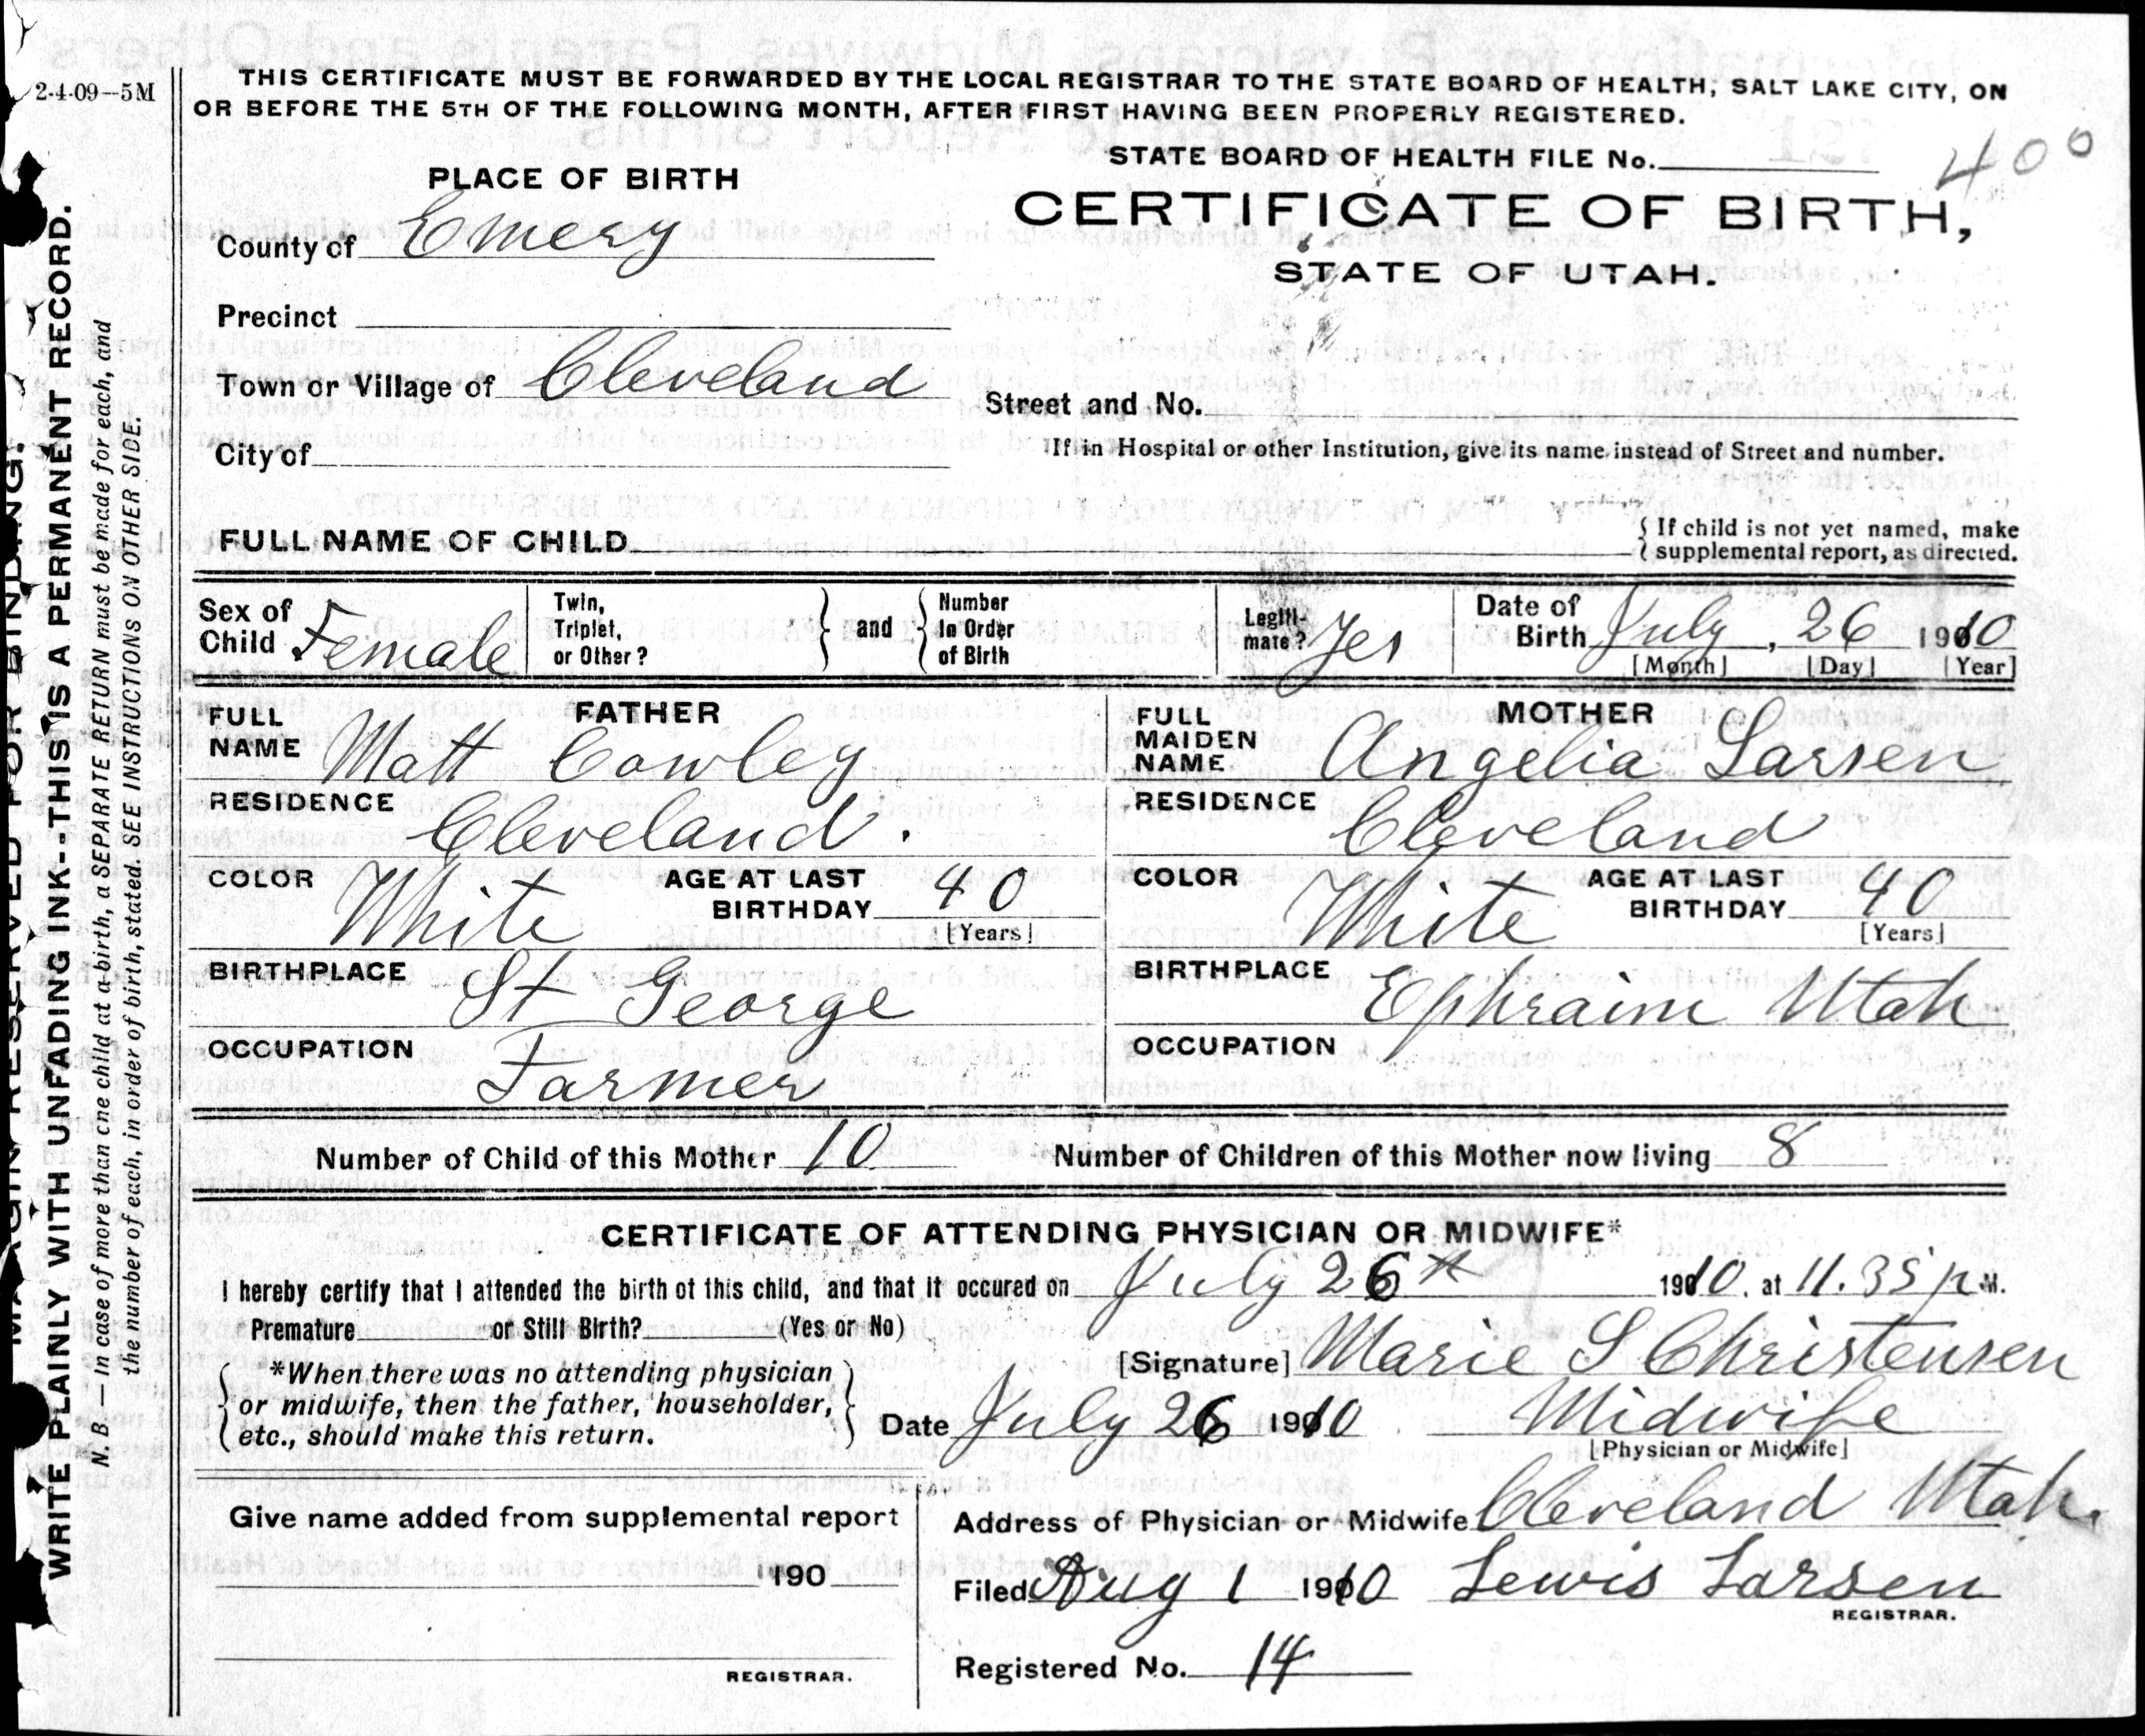 2-4-09--5M
THIS CERTIFICATE MUST BE FORWARDED BY THE LOCAL REGISTRAR TO THE STATE BOARD OF HEALTH, SALT LAKE CITY, ON
OR BEFORE THE 5TH OF THE FOLLOWING MONTH, AFTER FIRST HAVING BEEN PROPERLY REGISTERED.
STATE BOARD OF HEALTH FILE No. 400
PLACE OF BIRTH
CERTIFICATE OF BIRTH,
STATE OF UTAH.
County of Emery
Precinct
Town or Village of Cleveland
Street and No.
City of
If in Hospital or other Institution, give its name instead of Street and number.
FULL NAME OF CHILD
{ If child is not yet named, make
{ supplemental report, as directed.
Sex of Child Female
Twin, Triplet, or Other? } and { Number In Order of Birth
Legiti-mate? Yes
Date of Birth July, 26 1910
[Month] [Day] [Year]
FATHER
FULL NAME Matt Cowley
RESIDENCE Cleveland.
COLOR White AGE AT LAST BIRTHDAY 40
[Years]
BIRTHPLACE St George
OCCUPATION Farmer
MOTHER
FULL MAIDEN NAME Angelia Larsen
RESIDENCE Cleveland
COLOR White AGE AT LAST BIRTHDAY 40
[Years]
BIRTHPLACE Ephraim Utah
OCCUPATION
Number of Child of this Mother 10 Number of Children of this Mother now living 8
CERTIFICATE OF ATTENDING PHYSICIAN OR MIDWIFE*
I hereby certify that I attended the birth of this child, and that it occured on July 26th 1910, at 11.35 p M.
Premature or Still Birth? (Yes or No)
[Signature] Marie S Christensen
*When there was no attending physician
or midwife, then the father, householder,
etc., should make this return.
Date July 26 1910 Midwife
[Physician or Midwife]
Give name added from supplemental report
190
REGISTRAR.
Address of Physician or Midwife Cleveland Utah.
Filed Aug 1 1910 Lewis Larsen
REGISTRAR.
Registered No. 14
MARGIN RESERVED FOR BINDING.
WRITE PLAINLY WITH UNFADING INK--THIS IS A PERMANENT RECORD.
N. B.—In case of more than one child at a birth, a SEPARATE RETURN must be made for each, and
the number of each, in order of birth, stated. SEE INSTRUCTIONS ON OTHER SIDE.